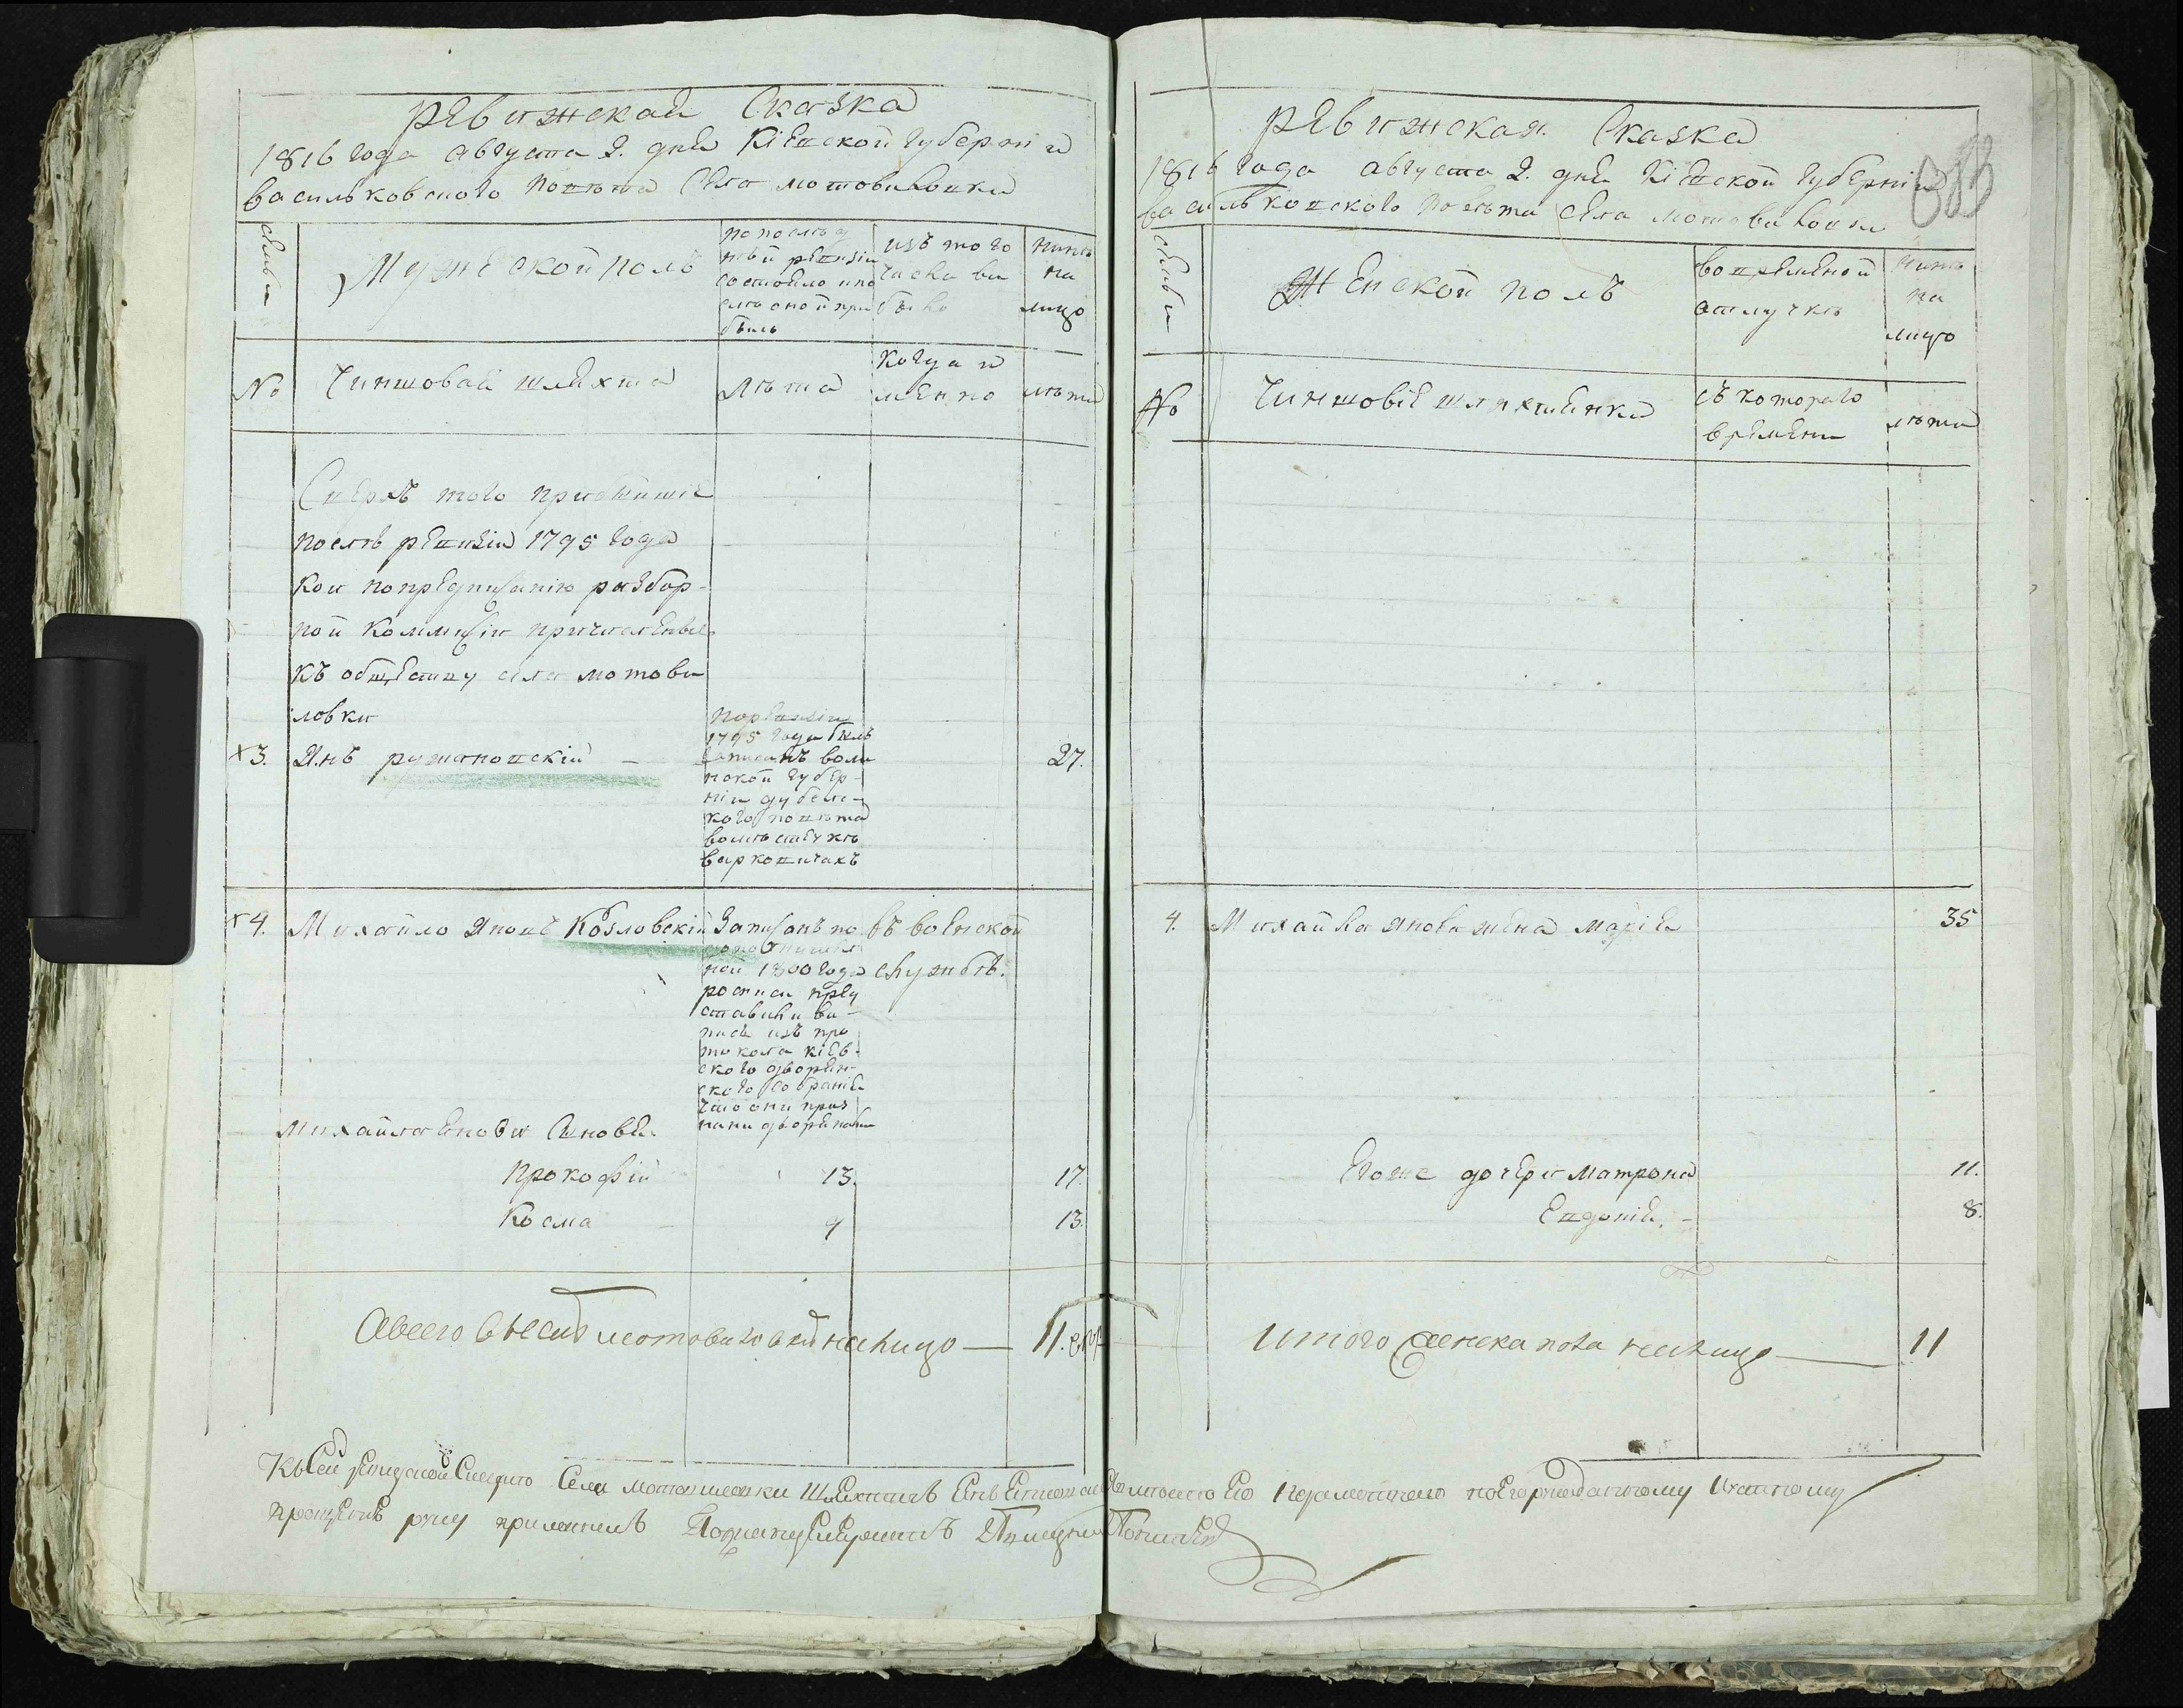 Ревижская Сказка
1816 года августа 2. дня Кіевской губерніи
васильковского повѣта Села мотовиловки
Семьи
Мужеской полъ
по послѣд
ней ревизіи
состояло и по
слѣ оной при
было
изъ того
числа вы
было
нинѣ
на
лицо
№
Чиншовая шляхта
лѣта
когда и
менно
лѣта
Сверхъ того прибывшіе
послѣ ревизіи 1795 года
кои по предписанію разбор-
ной коммисіи причисленые
къ обществу села мотови
ловки
х3. Янъ ружановскій —
по ревизіи
1795 года билъ
записанъ воли
нской губер-
ніи дубенс-
кого повѣта
в мѣстечкѣ
варковичахъ
27.
х4. Михайло Яновъ Козловскій
Записанъ по
ной 1800 года
росписи пред
ставили ви-
пись изъ про
токола кіев-
ского дворян-
ского собранія
что они приз
нани дворянами
въ воинской
службѣ.
Михайла Янова Сыновья
Прокофій 13. 17.
Косма 9 13.
А всего въ селѣ мотовиловки на лицо — 11.
Къ сей ревизской Села мотовиловки
Ревижская. Сказка
1816 года августа 2. дня Кіевской губерніи
васильковского повѣта села мотовиловки
383
Семьи
Женской полъ
во временной
отлучкѣ
нинѣ
на
лицо
№
Чиншовіе шляхтянки
съ котораго
времени
лѣта
4. Михайла Янова жена марія 35
Его же дочери Матрона 11.
Евдокія. - 8.
Итого женска пола на лицо — 11